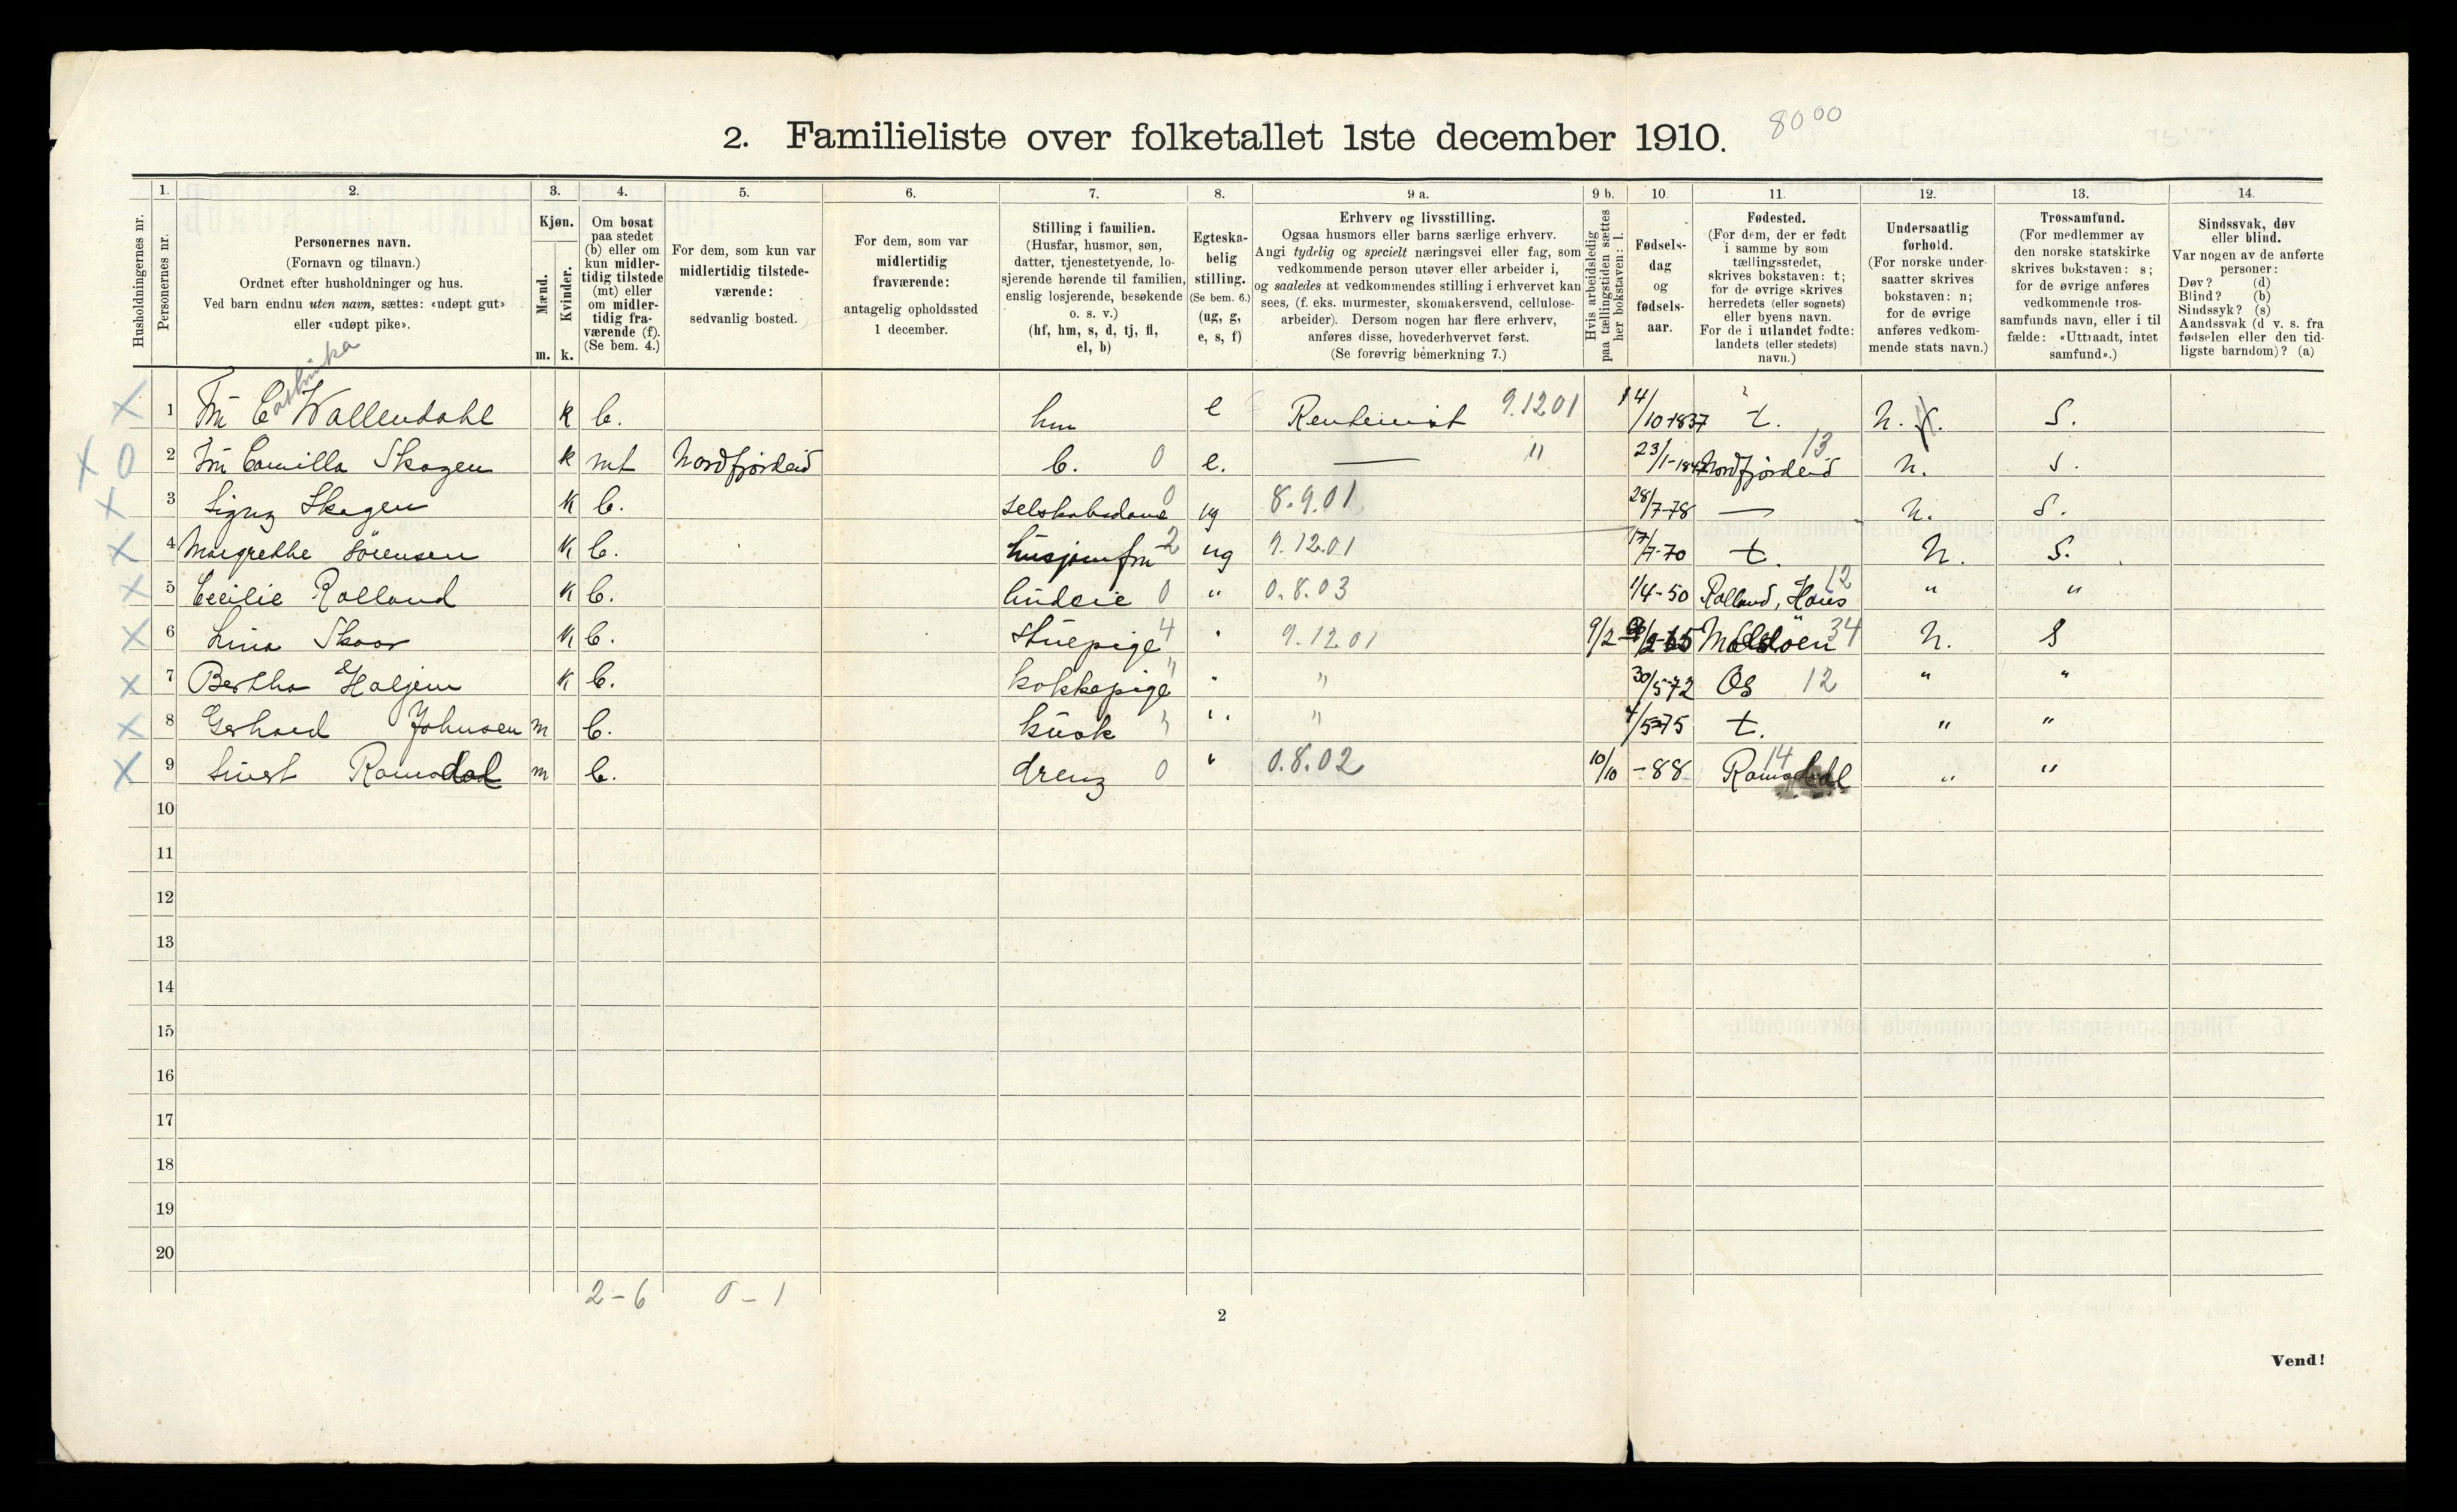 2. Familieliste over folketallet 1ste december 1910.
8000
Husholdningernes nr.
1. Personernes nr.
2. Personernes navn.
(Fornavn og tilnavn.)
Ordnet efter husholdninger og hus.
Ved barn endnu uten navn, sættes: «udøpt gut»
eller «udøpt pike».
3. Kjøn.
Mænd. m.
Kvinder. k.
4. Om bosat
paa stedet
(b) eller om
kun midler-
tidig tilstede
(mt) eller
om midler-
tidig fra-
værende (f).
(Se bem. 4.)
5. For dem, som kun var
midlertidig tilstede-
værende:
sedvanlig bosted.
6. For dem, som var
midlertidig
fraværende:
antagelig opholdssted
1 december.
7. Stilling i familien.
(Husfar, husmor, søn,
datter, tjenestetyende, lo-
sjerende hørende til familien,
enslig losjerende, besøkende
o. s. v.)
(hf, hm, s, d, tj, fl,
el, b)
8. Egteska-
belig
stilling.
(Se bem. 6.)
(ug, g,
e, s, f)
9 a. Erhverv og livsstilling.
Ogsaa husmors eller barns særlige erhverv.
Angi tydelig og specielt næringsvei eller fag, som
vedkommende person utøver eller arbeider i,
og saaledes at vedkommendes stilling i erhvervet kan
sees, (f. eks. murmester, skomakersvend, cellulose-
arbeider). Dersom nogen har flere erhverv,
anføres disse, hovederhvervet først.
(Se forøvrig bemerkning 7.)
9 b. Hvis arbeidsledig
paa tællingstiden sættes
her bokstaven: l.
10. Fødsels-
dag
og
fødsels-
aar.
11. Fødested.
(For dem, der er født
i samme by som
tællingsstedet,
skrives bokstaven: t;
for de øvrige skrives
herredets (eller sognets)
eller byens navn.
For de i utlandet fødte:
landets (eller stedets)
navn.)
12. Undersaatlig
forhold.
(For norske under-
saatter skrives
bokstaven: n;
for de øvrige
anføres vedkom-
mende stats navn.)
13. Trossamfund.
(For medlemmer av
den norske statskirke
skrives bokstaven: s;
for de øvrige anføres
vedkommende tros-
samfunds navn, eller i til
fælde: «Uttraadt, intet
samfund».)
14. Sindssvak, døv
eller blind.
Var nogen av de anførte
personer:
Døv? (d)
Blind? (b)
Sindssyk? (s)
Aandssvak (d v. s. fra
fødselen eller den tid-
ligste barndom)? (a)
X 1 Fru C Wallendahl k b. hm e Renteinist 9.1201 14/10 1837 t. n. S.
X 0 2 Fru Camilla Skagen k mt Nordfjordeid b. 0 e. — " 23/1- Nordfjordeid 13 n. S.
X 3 Signy Skagen k b. selskabsdame 0 ug 8.9.01 28/7-78 — n. S.
X 4 Margrethe Sörensen k b. husjomfru 2 ug 9.12.01 17/7-70 t. n. S.
X 5 Cecilie Rolland k b. budeie 0 " 0.8.03 1/4-50 Rolland, Haus 12 " "
X 6 Lina Skaar k b. Stuepige 4 " 9.12.01 9/2 65 34 n. S
X 7 Bertha Haljem k b. kokkepige " " " 30/5-72 Os 12 " "
X 8 Gerhard Johnsen m b. kusk " " " 4/5-75 t. " "
X 9 Sivert Romsdal m b. dreng 0 " 0.8.02 10/10 -88 Romsdal 14 " "
10
11
12
13
14
15
16
17
18
19
20
2-6 0-1
2
Vend!